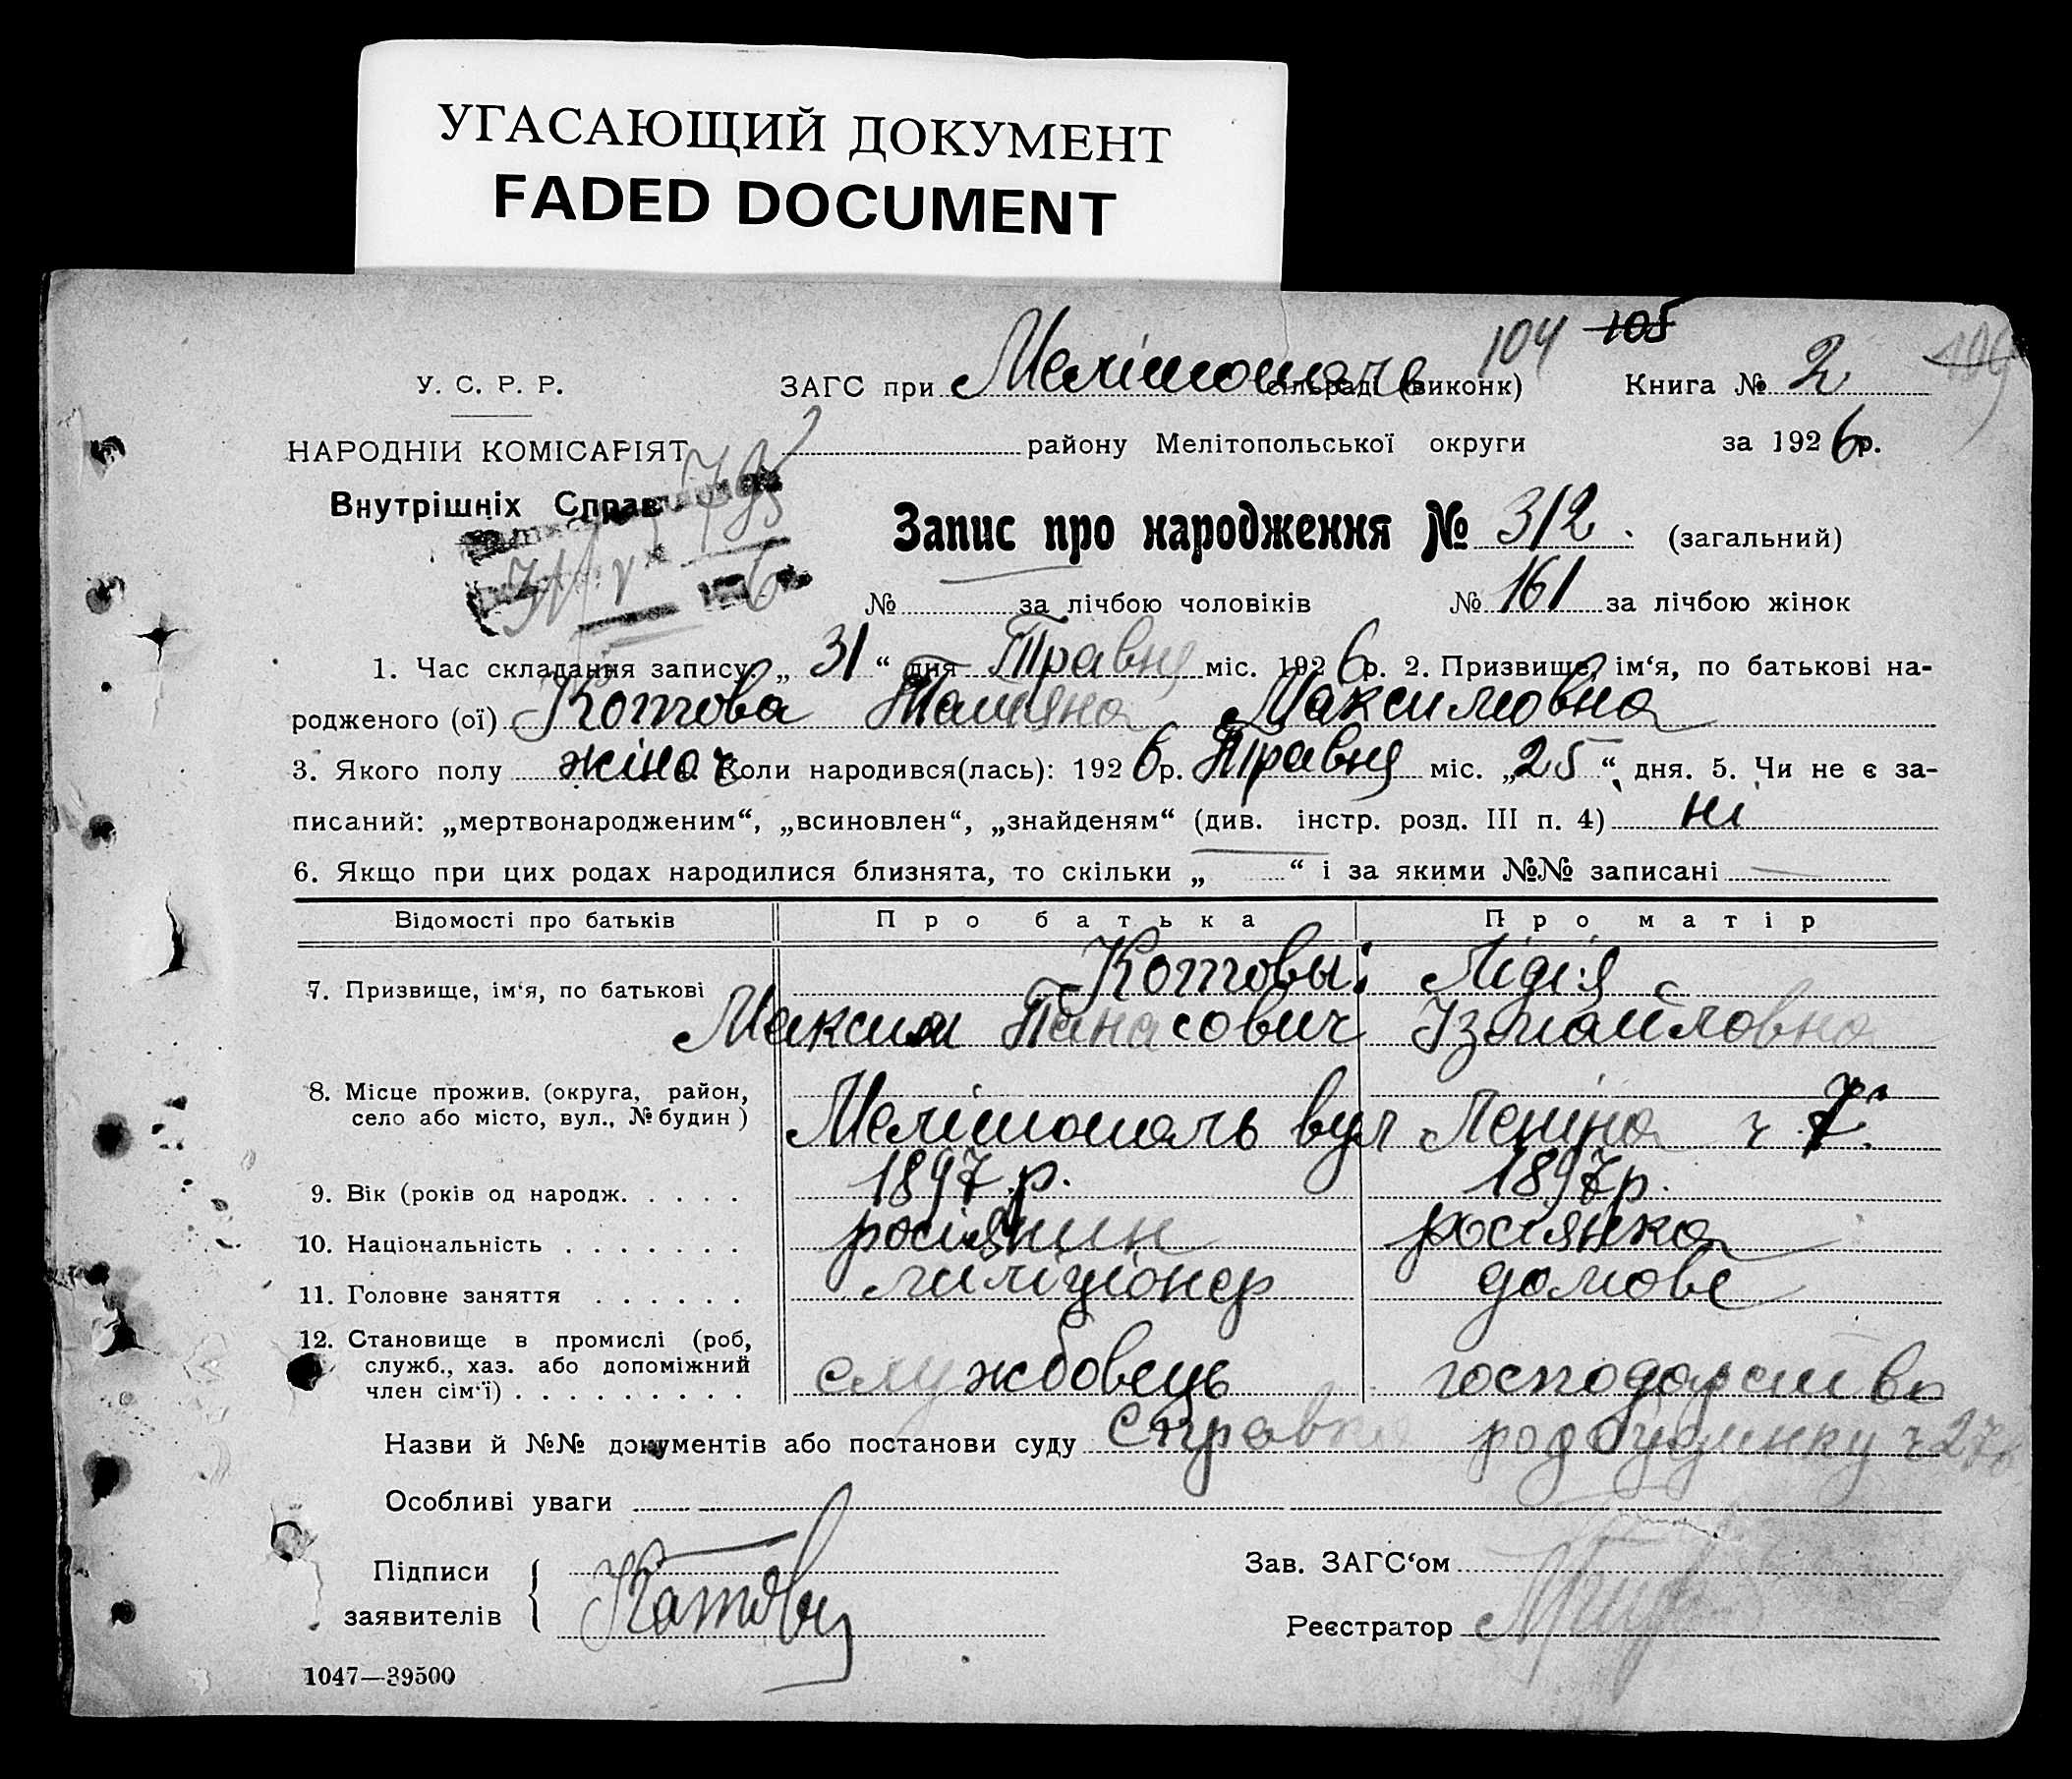 УГАСАЮЩИЙ ДОКУМЕНТ
FADED DOCUMENT
104 105
У. С. Р. Р. ЗАГС при Мелітополь сільраді (виконк) Книга № 2
НАРОДНІЙ КОМІСАРІЯТ району Мелітопольської округи за 1926р.
Внутрішніх Справ
Запис про народження № 312. (загальний)
№ за лічбою чоловіків № 161 за лічбою жінок
1. Час складання запису: „31“ дня Травня міс. 1926р. 2. Призвище, ім‘я, по батькові на-
родженого (ої) Котова Татяна Максимовна
3. Якого полу жіноч Коли народився(лась): 1926р. Травня міс. „25“ дня. 5. Чи не є за-
писаний: „мертвонародженим“, „всиновлен“, „знайденям“ (див. інстр. розд. III п. 4) ні
6. Якщо при цих родах народилися близнята, то скільки „ “ і за якими №№ записані
Відомості про батьків Про батька Про матір
Котовы: Лідія
7. Призвище, ім‘я, по батькові
Максим Панасович Ізмайловна
8. Місце прожив. (округа, район,
село або місто, вул., № будин) Мелітополь вул Леніна ч 7
9. Вік (років од народж. . . . . 1897 р. 1897р.
10. Національність . . . . . . . росіянин росіянка
11. Головне заняття . . . . . . міліціонер домове
12. Становище в промислі (роб,
служб., хаз. або допоміжний службовець господарство
член сім‘ї) . . . . . . . . .
Назви й №№ документів або постанови суду Справка род будинку ч 27
Особливі уваги
Підписи Зав. ЗАГС‘ом
заявителів Котов Реєстратор
1047—39500